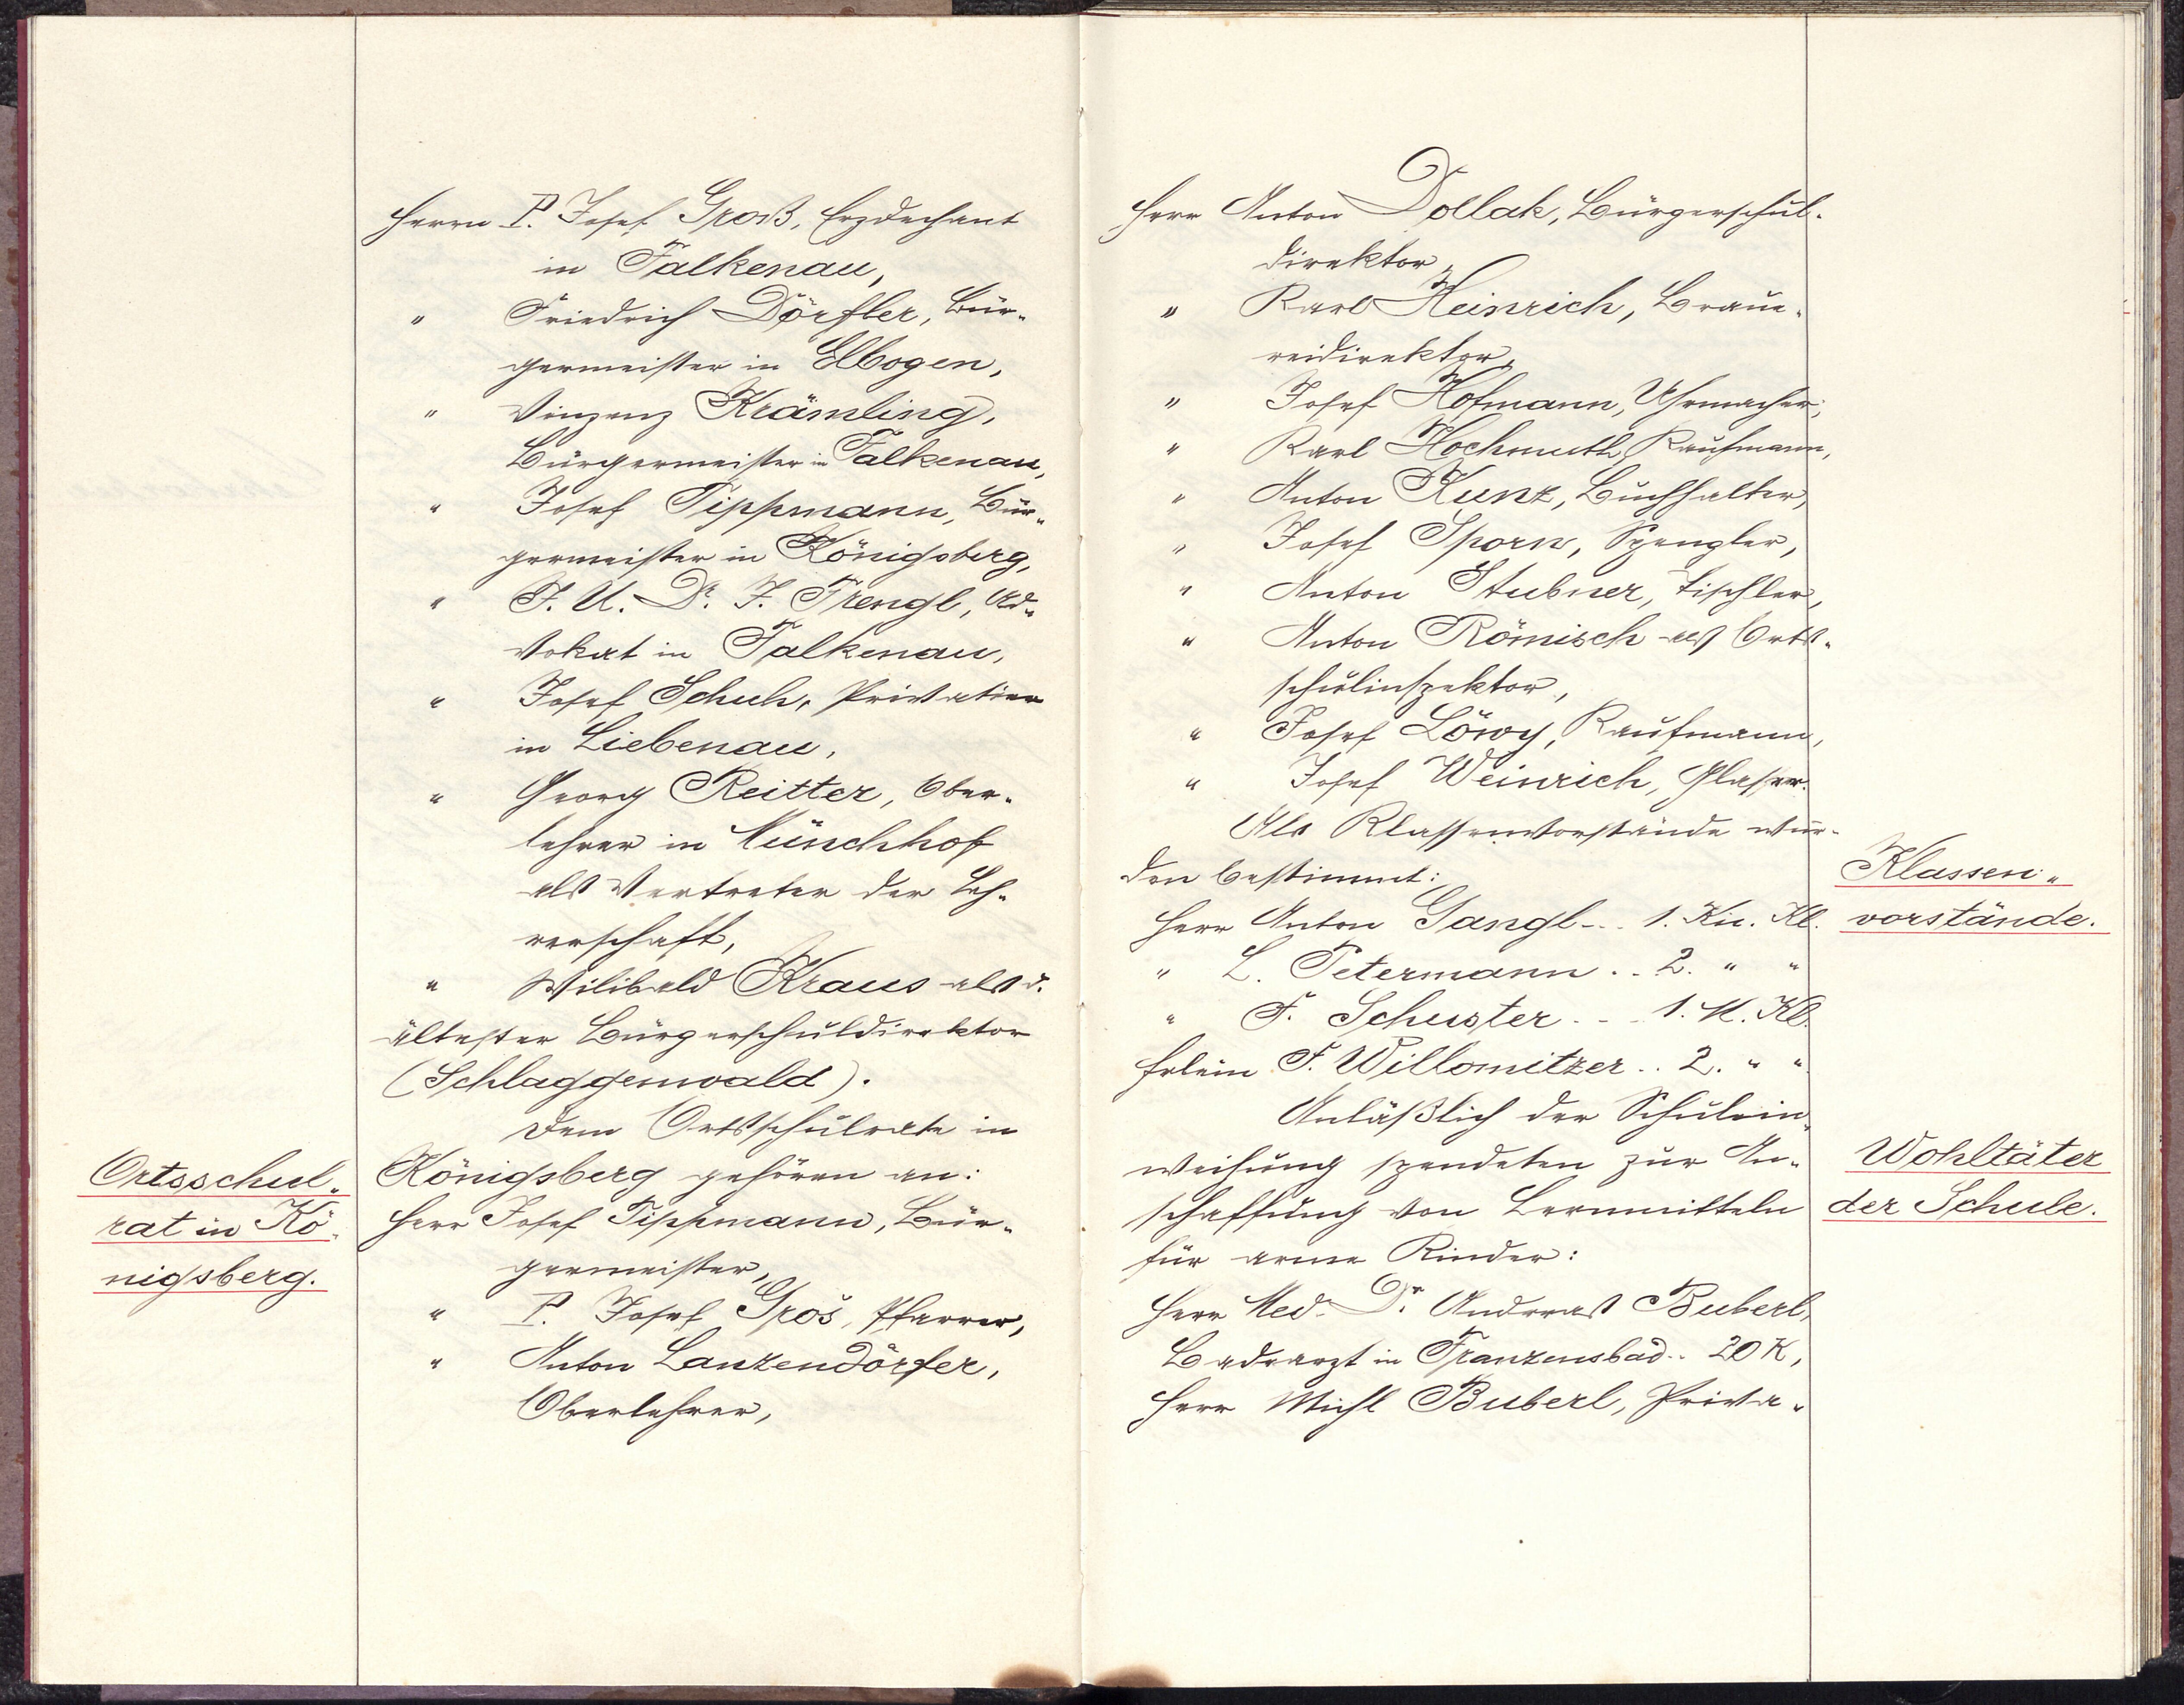 Herrn P. Josef Groß, Erzdechant
in Falkenau,
" Friedrich Dörfler, Bür-
germeister in Elbogen,
" Vinzenz Krämling,
Bürgermeister in Falkenau,
" Josef Tippmann, Bür-
germeister in Königsberg,
" J. U. Dr. F. Trengl, Ad-
vokat in Falkenau,
" Josef Schuh, Privatier
in Liebenau,
" Georg Reitter, Ober-
lehrer in Münchhof
als Vertreter der Leh-
rerschaft,
" Wilibald Kraus als d.
ältester Bürgerschuldirektor
(Schlaggenwald).
Dem Ortsschulrate in
Ortsschul-
rat in Kö-
nigsberg.
Königsberg gehören an:
Herr Josef Tippmann, Bür-
germeister,
" P. Josef Grös, Pfarrer,
" Anton Lanzendörfer,
Oberlehrer,
Herr Anton Dollak, Bürgerschul-
direktor,
" Karl Heinrich, Braue-
reidirektor,
" Josef Hofmann, Uhrmacher,
" Karl Hochmuth, Kaufmann,
" Anton Kunz, Buchhalter,
" Josef Sporn, Spengler,
" Anton Stubner, Tischler,
" Anton Römisch als Orts-
schulinspektor,
" Josef Löwy, Kaufmann,
" Josef Weinrich, Glaser.
Als Klassenvorstände wur-
den bestimmt:
Klassen-
vorstände.
Herr Anton Gangl... 1. Kn. Kl.
" L. Petermann.. 2. " "
" F. Schuster... 1. M. Kl.
Frlein F. Willomitzer.. 2. " "
Anläßlich der Schulein-
weihung spendeten zur An-
schaffung von Lernmitteln
für arme Kinder:
Wohltäter
der Schule.
Herr Med. Dr. Andreas Buberl,
Badearzt in Franzensbad.. 20 K,
Herr Michl Buberl, Priva-